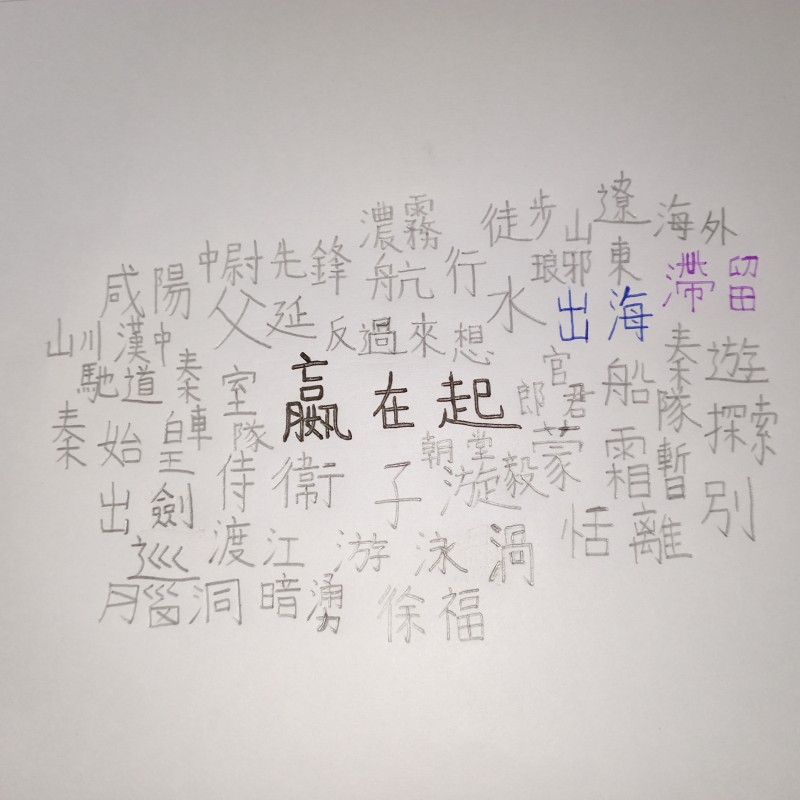 濃霧 徒步 遼 海外
山
咸陽 中尉先鋒 航行 琅邪 東 滯留
父延 水 出海
山川 漢中 反過來想
馳道 秦 室 官 船 秦 遊
嬴在起 郎君
秦始皇 車 隊 朝堂 蒙 隊 探索
出劍 侍衛 子 漩 毅 霜 暫
巡 渡江 游泳 渦 恬 離 別
洞 暗湧 徐福